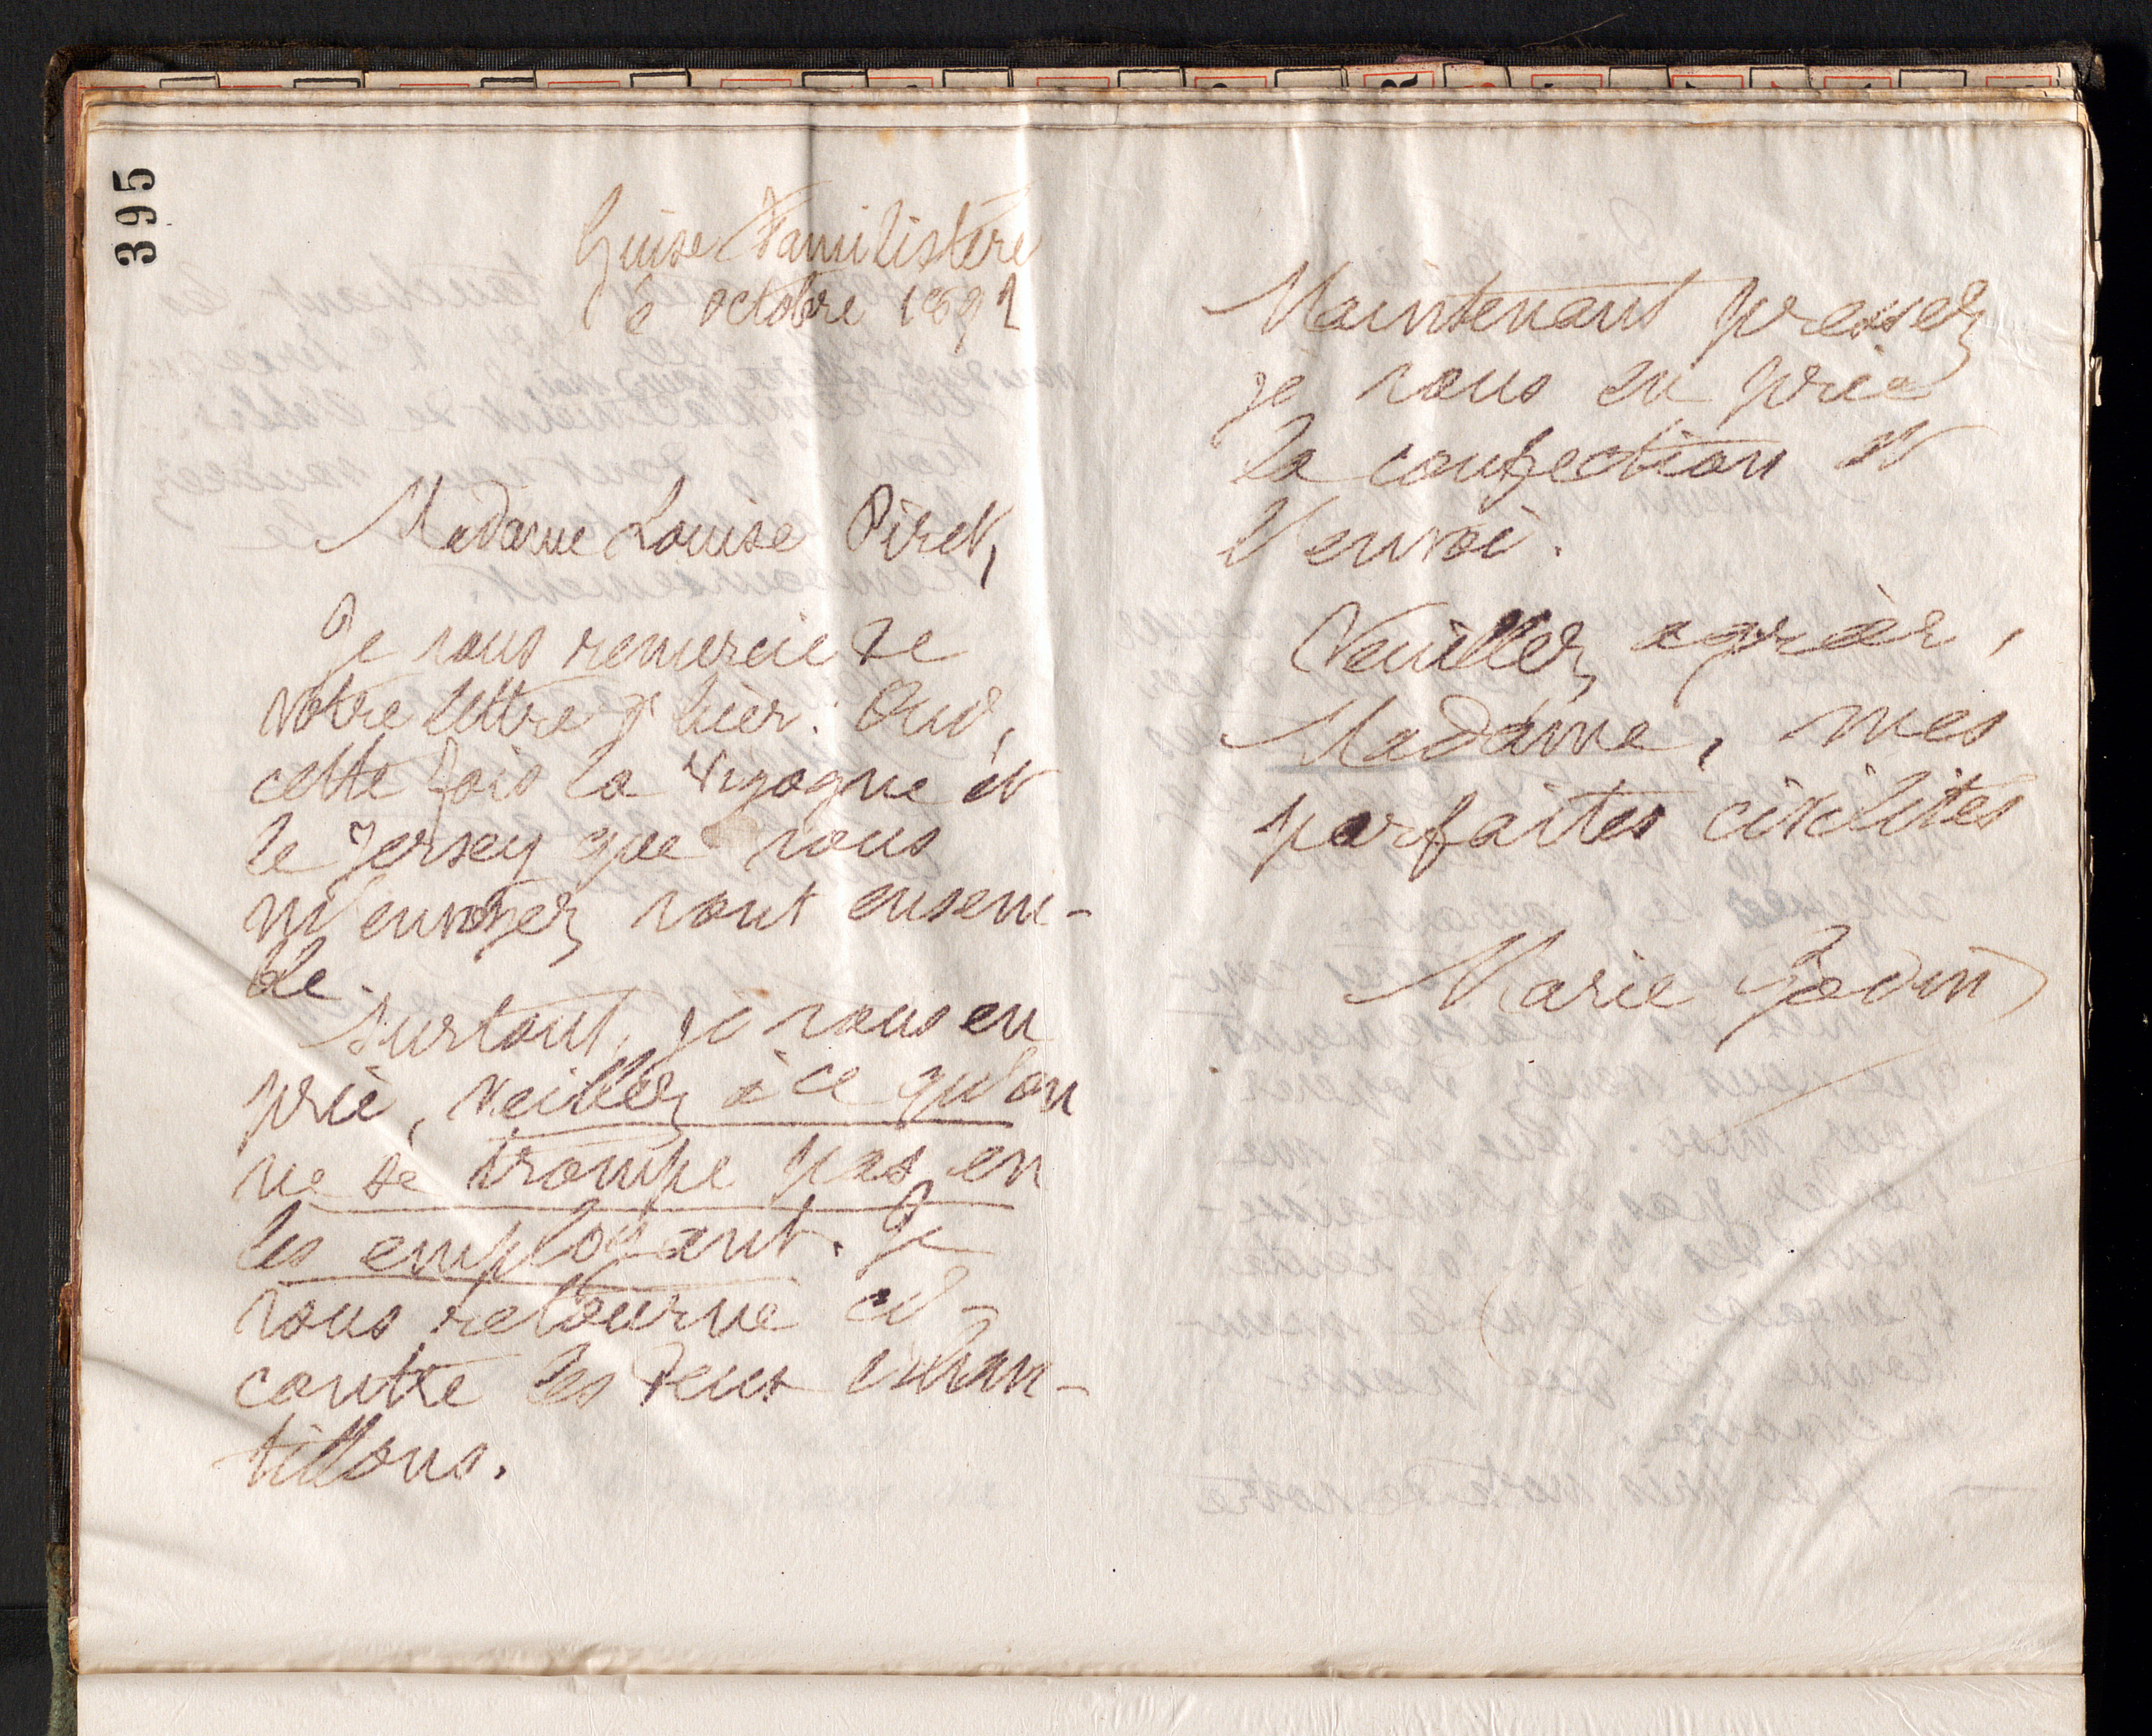 395
Guise Familistère
6 octobre 1892
Madame Louise Piret,
Je vous remercie de
votre lettre d'hier. Oui,
cette fois la vigogne et
le jersey que vous
m'envoyez vont ensem-
ble.
Surtout, je vous en
prie, veillez à ce qu'on
ne se trompe pas en
les employant. Je
vous retourne ci-
contre les deux échan-
tillons.
Maintenant pressez
je vous en prie
la confection et
l'envoi.
Veuillez agréer,
Madame, mes
parfaites civilités
Marie Godin